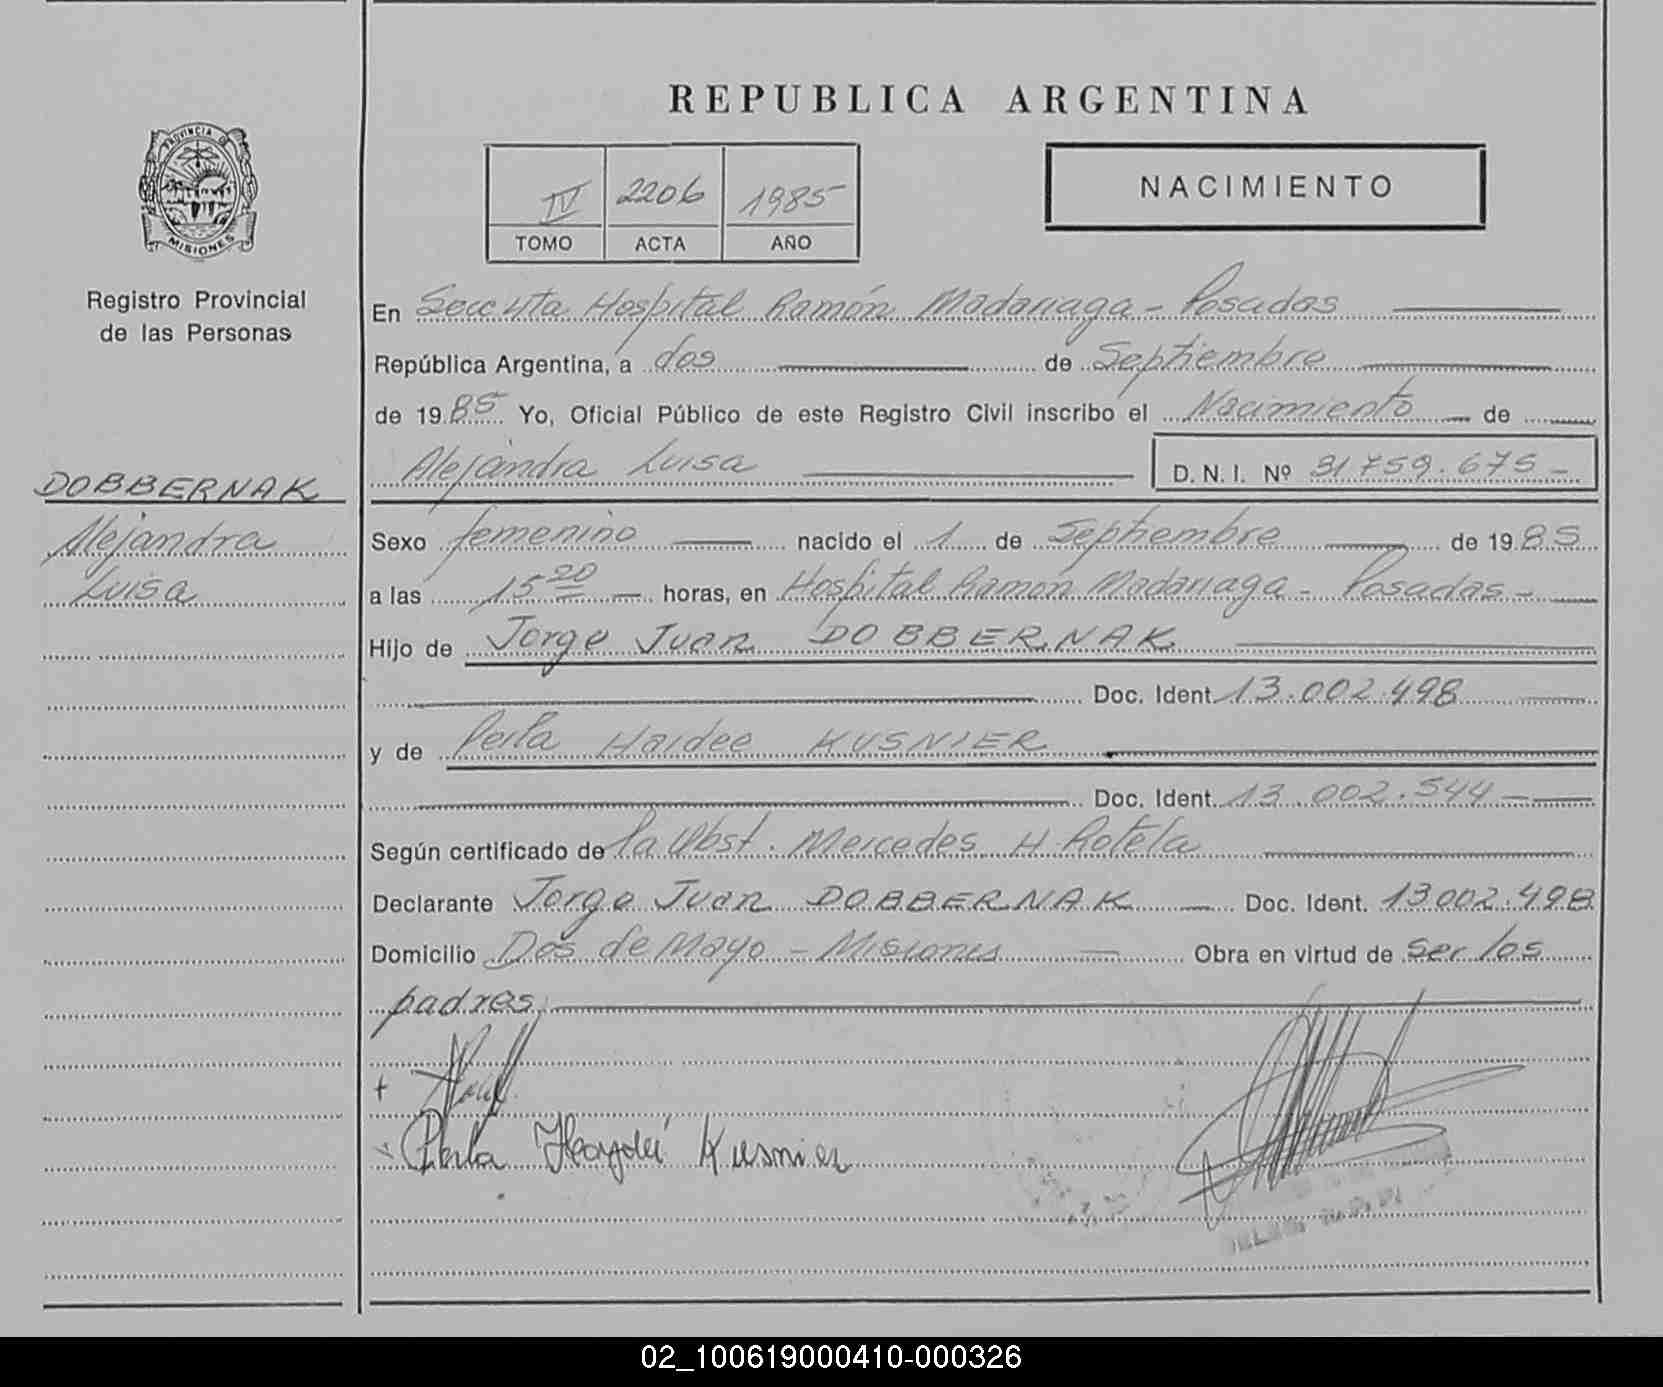 REPUBLICA ARGENTINA
PROVINCIA DE
MISIONES
Registro Provincial
de las Personas
IV 2206 1985
TOMO ACTA AÑO
NACIMIENTO
En Secc. Hospital Ramón Madariaga - Posadas
República Argentina, a dos de Septiembre
de 1985 Yo, Oficial Público de este Registro Civil inscribo el Nacimiento de
Alejandra Luisa D. N. I. Nº 31759.675 -
DOBBERNAK
Alejandra
Luisa
Sexo femenino nacido el 1 de Septiembre de 1985
a las 15 20 horas, en Hospital Ramón Madariaga - Posadas -
Hijo de Jorge Juan DOBBERNAK
Doc. Ident. 13.002.498
y de Perla Haidee KUSNIER
Doc. Ident. 13.002.544 -
Según certificado de la Obst. Mercedes H. Rotela
Declarante Jorge Juan DOBBERNAK Doc. Ident. 13.002.498
Domicilio Dos de Mayo - Misiones Obra en virtud de ser los
padres.
Perla Haydeé Kusnier
02_100619000410-000326